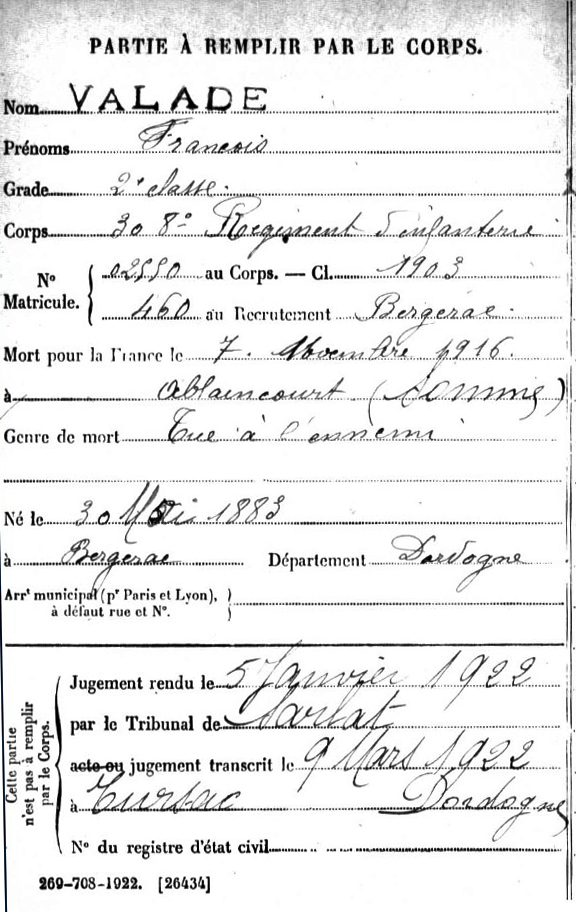 PARTIE À REMPLIR PAR LE CORPS.
Nom VALADE
Prénoms François
Grade 2e classe.
Corps 308e Régiment d'infanterie
No Matricule. 02550 au Corps. — Cl. 1903
460 au Recrutement Bergerac.
Mort pour la France le 7. Novembre 1916.
à Ablaincourt (Somme)
Genre de mort Tué à l'ennemi
Né le 30 Mai 1883
à Bergerac Département Dordogne
Arrt municipal (pr Paris et Lyon), à défaut rue et No.
Cette partie n'est pas à remplir par le Corps.
Jugement rendu le 5 Janvier 1922
par le Tribunal de Sarlat
acte ou jugement transcrit le 9 Mars 1922
à Tursac Dordogne
No du registre d'état civil
269-708-1922. [26434]